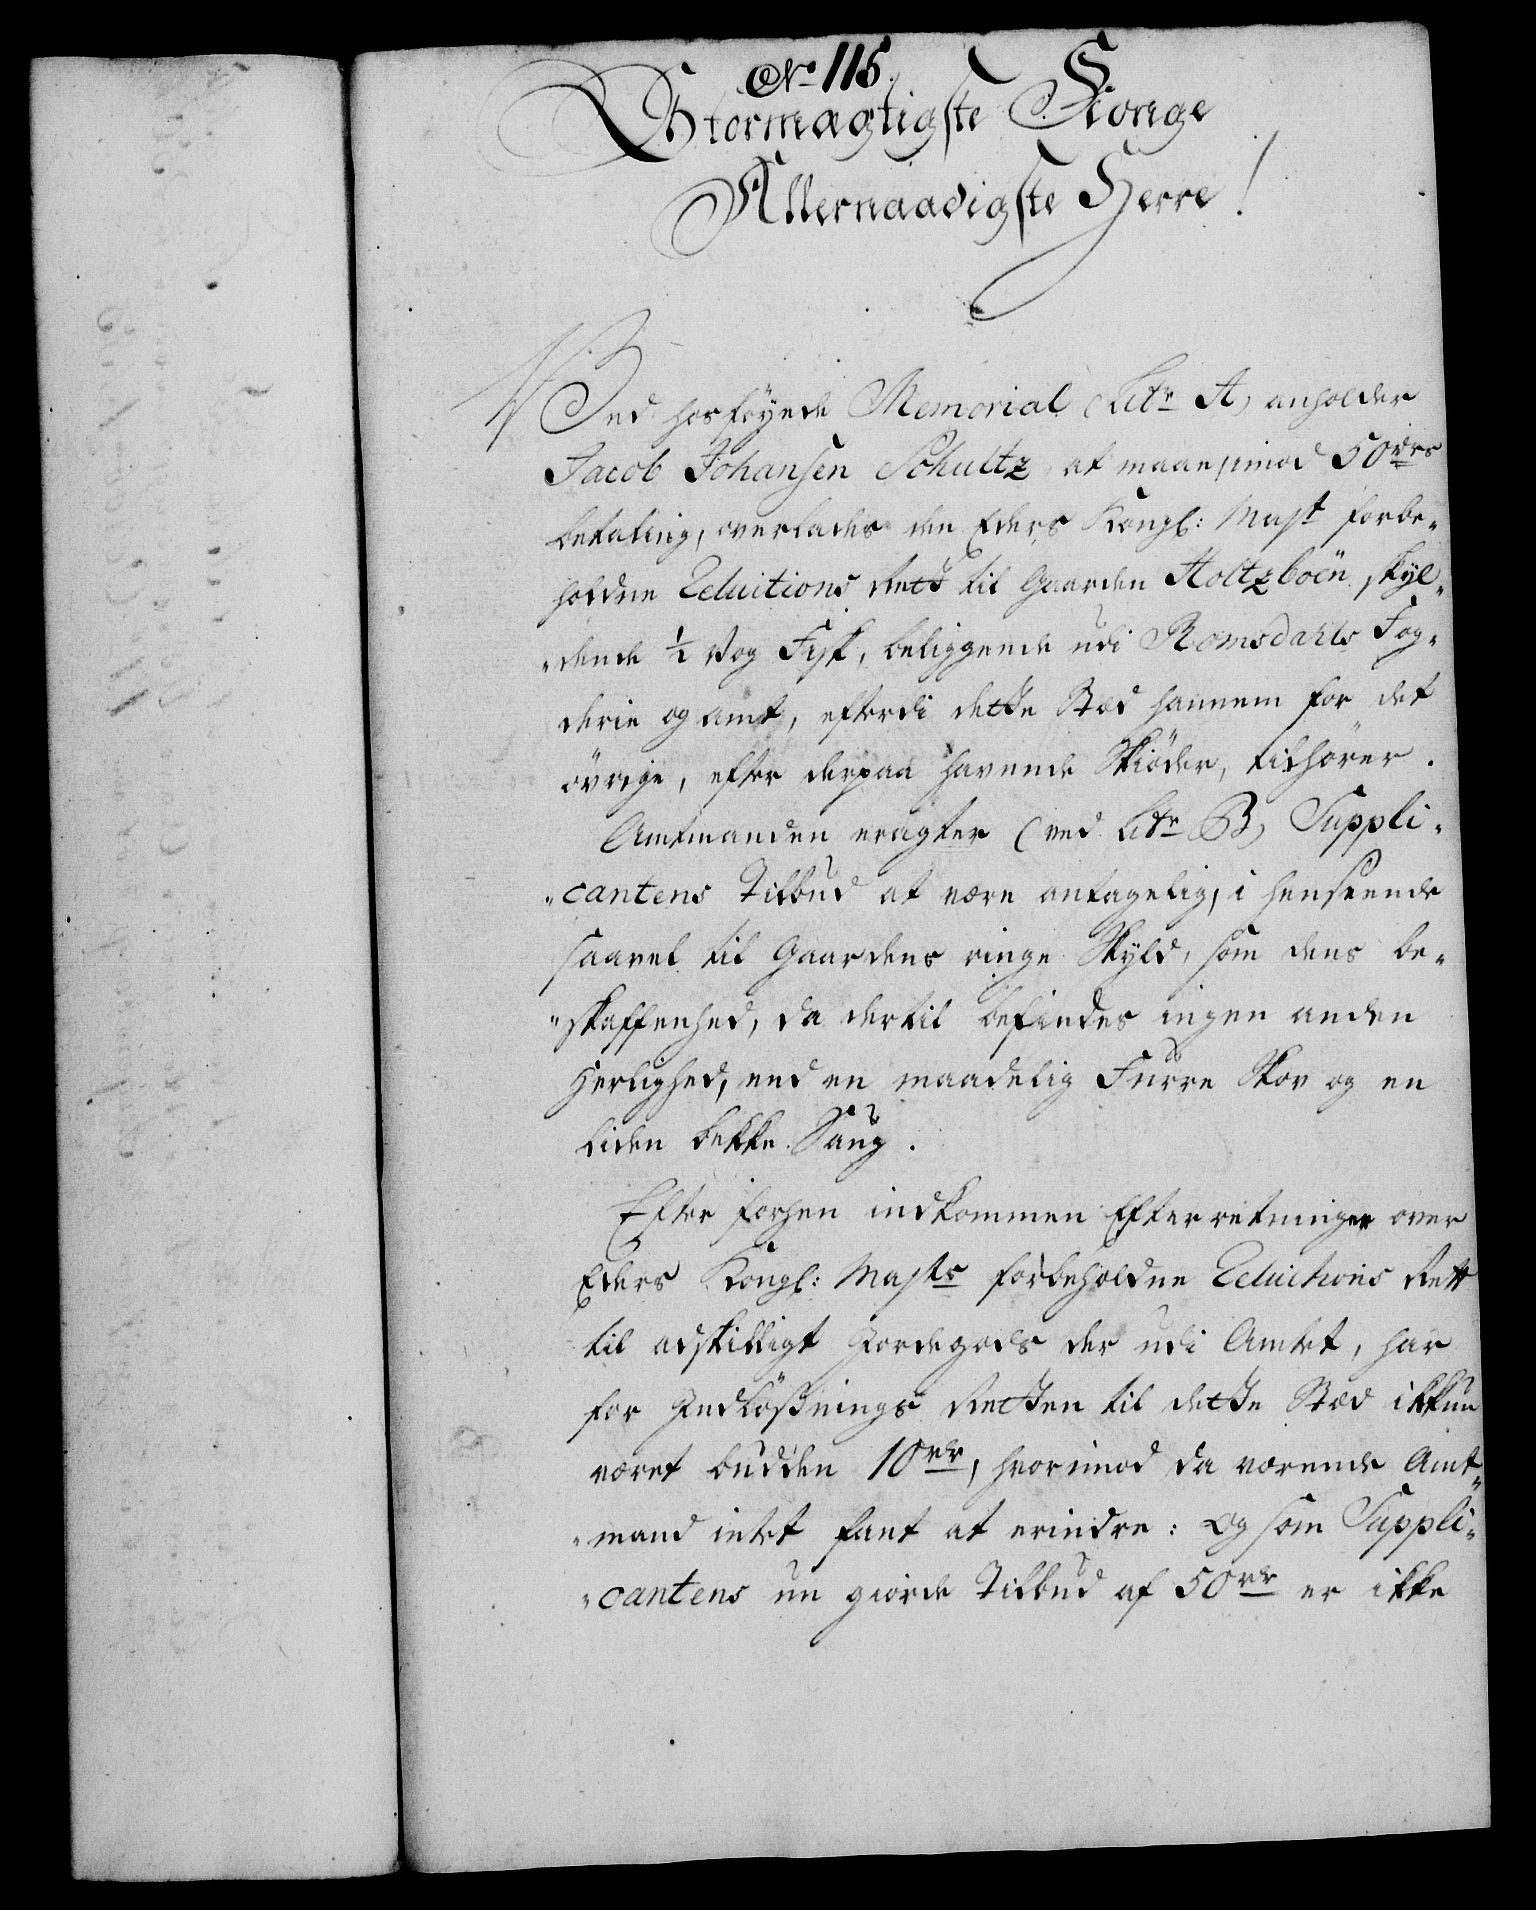 No 115.
Stormægtigste Konge
Allernaadigste Herre!
Ved hosföyede Memorial (Litr A) anholder
Jacob Johansen Schultz at maae, imod 50 rdrs
betaling, overlades den Eders Kongl: Mayt forbe-
holdne Reluitions Rett til Gaarden Holtzboen skyl-
-dende ½ Vog Fisk, beliggende udi Romsdahls Fog-
derie og Amt, efterdi dette Stæd hannem for det
övrige, efter derpaa havende Skiöder, tilhörer.
Amtmanden eragter (ved Litr B) Suppli-
-cantens Tilbud at være antagelig, i henseende
saavel til Gaardens ringe Skyld, som dens be-
-skaffenhed, da dertil befindes ingen anden
Herlighed, end en maadelig Furre Skov og en
liden bekke Saug.
Efter forhen indkommen Efterretninger over
Eders Kongl: Mayts forbeholdne Reluitions Rett
til adskilligt Jordegods der udi Amtet, har
for Indlösnings Retten til dette Stæd ikkun
været budden 10 rdr, hvorimod da værende Amt-
-mand intet fant at erindre: Og som Suppli-
-cantens nu giorde Tilbud af 50 rdr er ikke